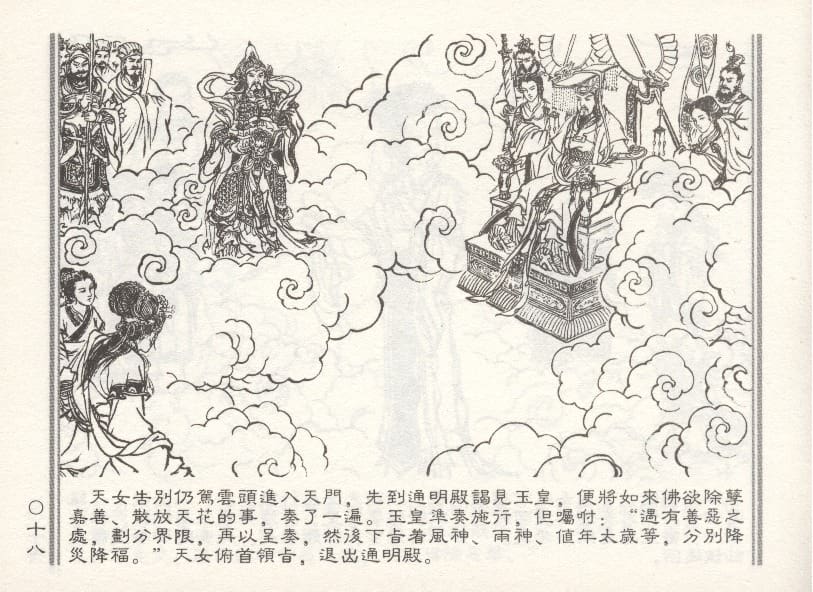 天女告別仍駕雲頭進入天門，先到通明殿謁見玉皇，便將如來佛欲除孽
嘉善、散放天花的事，奏了一遍。玉皇準奏施行，但囑咐：“遇有善惡之
處，劃分界限，再以呈奏，然後下旨着風神、雨神、值年太歲等，分別降
災降福。”天女俯首領旨，退出通明殿。
○十八